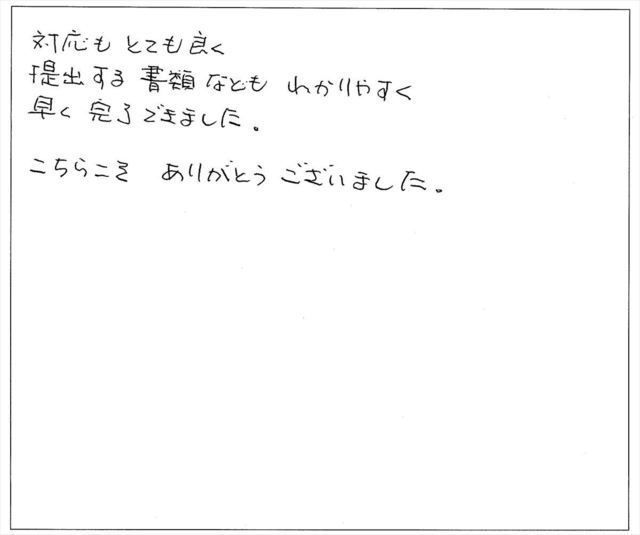 対応も とても良く
提出する 書類 なども わかりやすく
早く 完了できました。
こちらこそ ありがとう ございました。